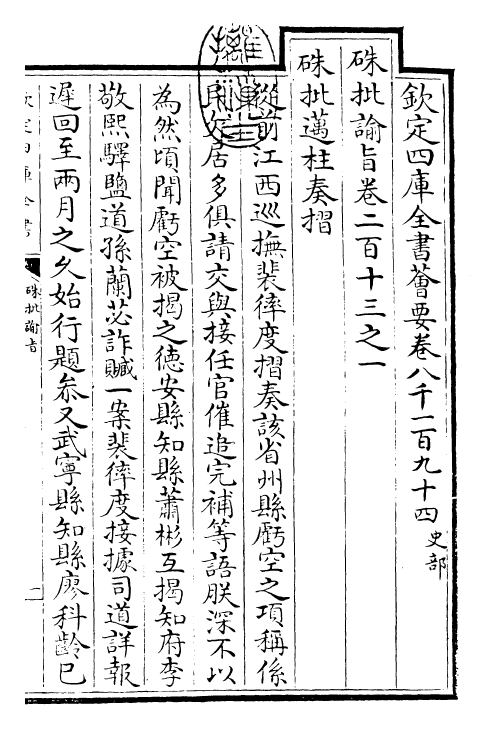 欽定四庫全書薈要卷八千一百九十四 史部
硃批諭旨卷二百十三之一
硃批邁柱奏摺
從前江西巡撫裴𢕄度摺奏該省州縣虧空之項稱係
民欠居多俱請交與接任官催追完補等語朕深不以
為然頃聞虧空被揭之德安縣知縣蕭彬互揭知府李
敬熙驛鹽道孫蘭苾詐贓一案裴𢕄度接據司道詳報
遲回至兩月之久始行題叅又武寧縣知縣廖科齡已
欽定四庫全書
硃批諭旨
一